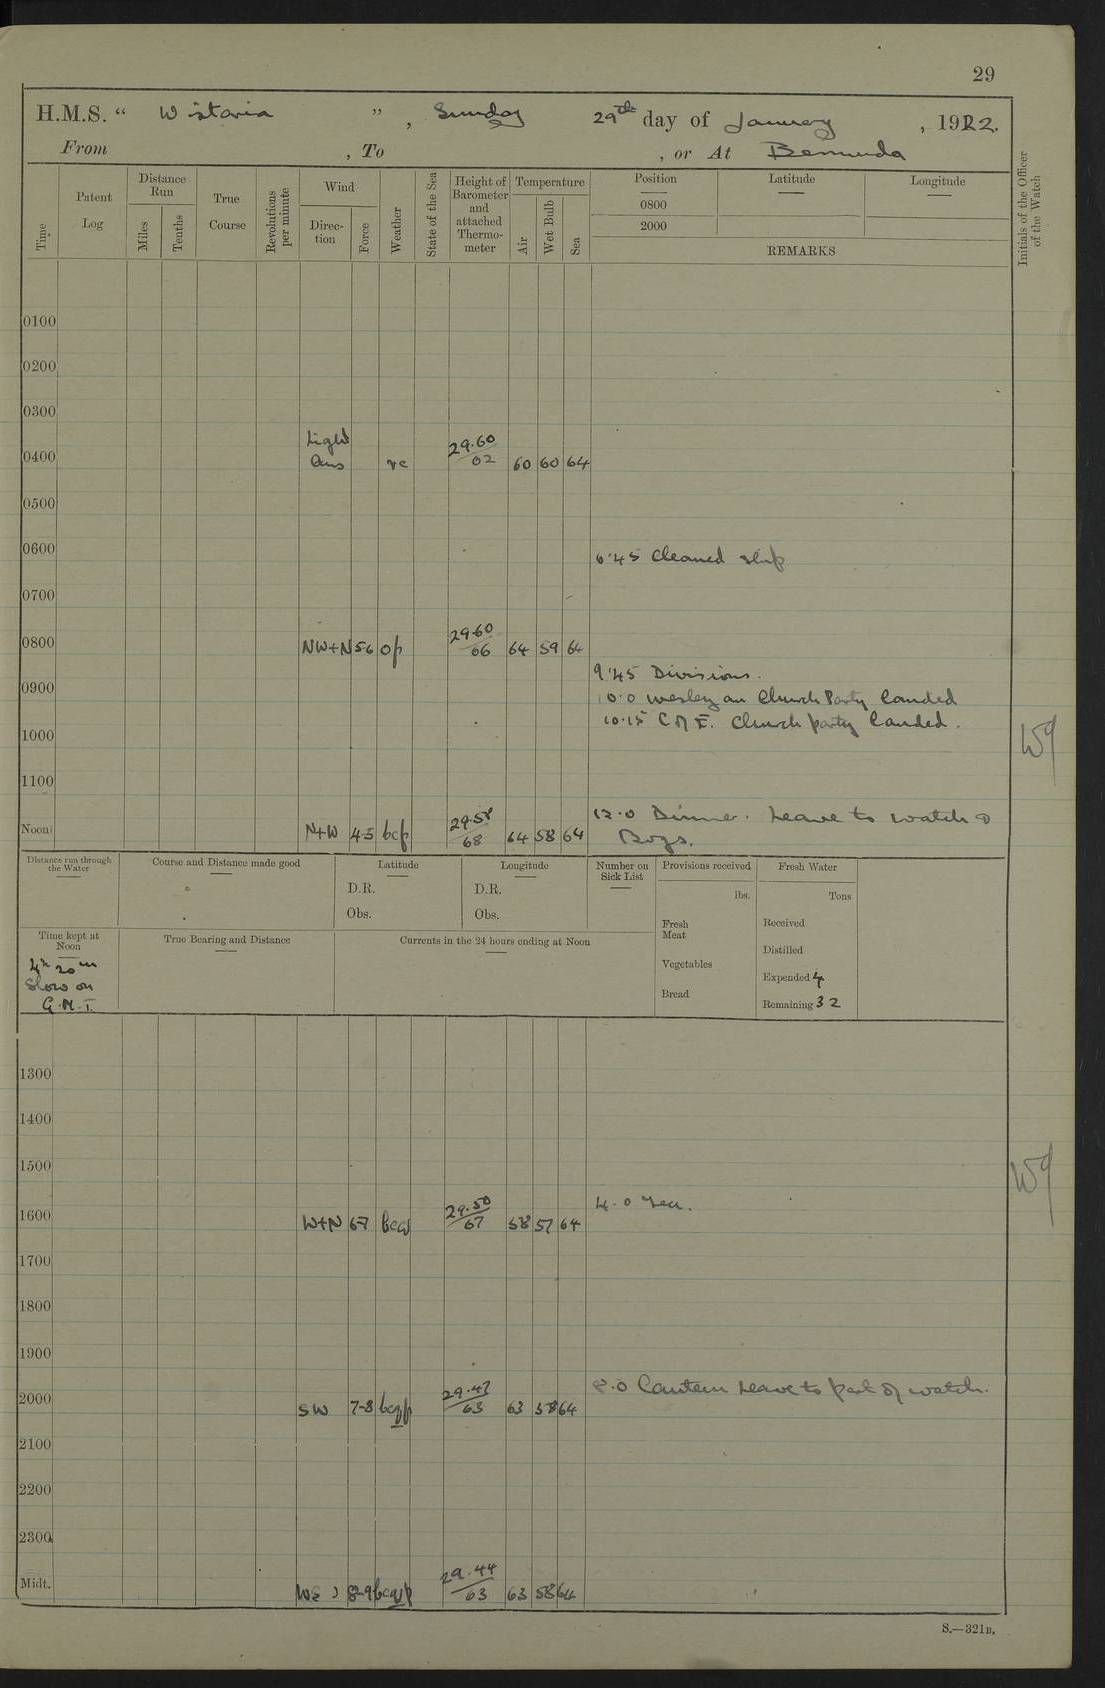 29
H.M.S. " Wistaria ", Sunday 29th day of January, 1922.
From , To , or At Bermuda
Time
Patent Log
Distance Run
Miles
Tenths
True Course
Revolutions per minute
Wind
Direction
Force
Weather
State of the Sea
Height of Barometer and attached Thermometer
Temperature
Air
Wet Bulb
Sea
Position Latitude Longitude
0800
2000
REMARKS
Initials of the Officer of the Watch
0100
0200
0300
Light
0400 29.60/62 60 60 64
0500
0600 6.45 Cleaned ship
0700
0800 NW+N 5-6 op 29.60/66 64 59 64
9.45 Divisions.
0900 10.0 Wesleyan Church Party landed
10.15 C of E. Church party landed.
1000
1100
Noon N+W 4-5 bcp 29.58/68 64 58 64 12.0 Dinner. Leave to watch &
Boys.
Distance run through the Water
Course and Distance made good
Latitude
D.R.
Obs.
Longitude
D.R.
Obs.
Number on Sick List
Provisions received
lbs.
Fresh Meat
Vegetables
Bread
Fresh Water
Tons
Received
Distilled
Expended 4
Remaining 32
Time kept at Noon
4h 20m
Slow on
G.M.T.
True Bearing and Distance
Currents in the 24 hours ending at Noon
1300
1400
1500
4.0 Tea.
1600 W+N 6-7 29.50/67 58 57 64
1700
1800
1900
8.0 Canteen leave to part of watch.
2000 SW 7-8 bcqp 29.47/63 63 58 64
2100
2200
2300
Midt. 8-9 bcqp 29.44/63 63 58 64
S.—321B.